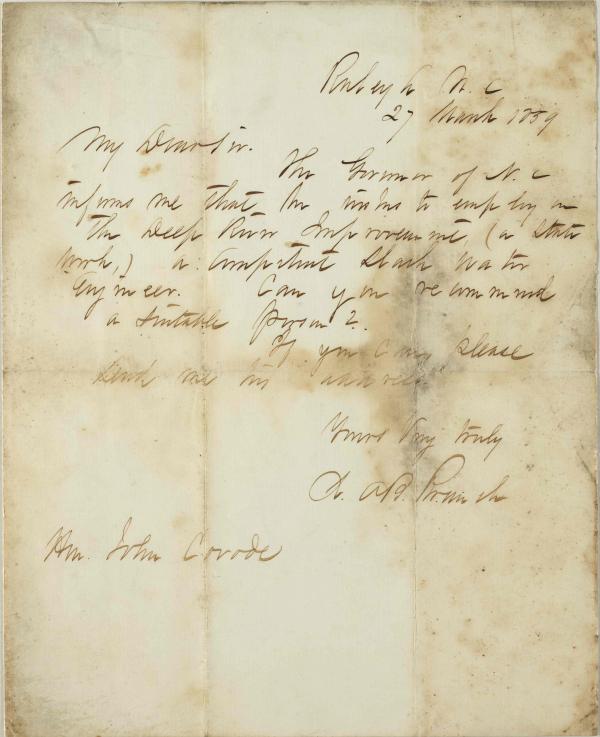 Raleigh N. C
27 March 1859
My Dear Sir.
The Governor of N. C
informs me that he wishes to employ on
the Deep River Improvement, (a State
work,) a competent Slack water
Engineer. Can you recommend
a suitable person?
If you can, please
send me his address.
Yours Very truly
L. O'B. Branch
Hon. John Covode